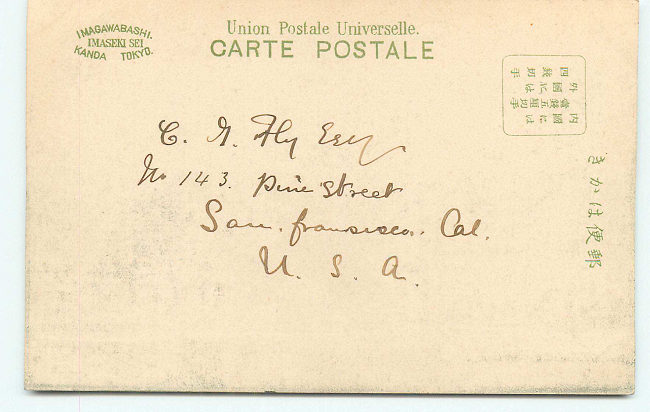 IMAGAWABASHI.
IMASEKI SEI
KANDA TOKYO.
Union Postale Universelle.
CARTE POSTALE
内國には
壹錢五厘切手
外國には
四錢切手
きかは便郵
C. A. Fly Esq
No 143. Pine Street
San. Francisco. Cal.
U. S. A.